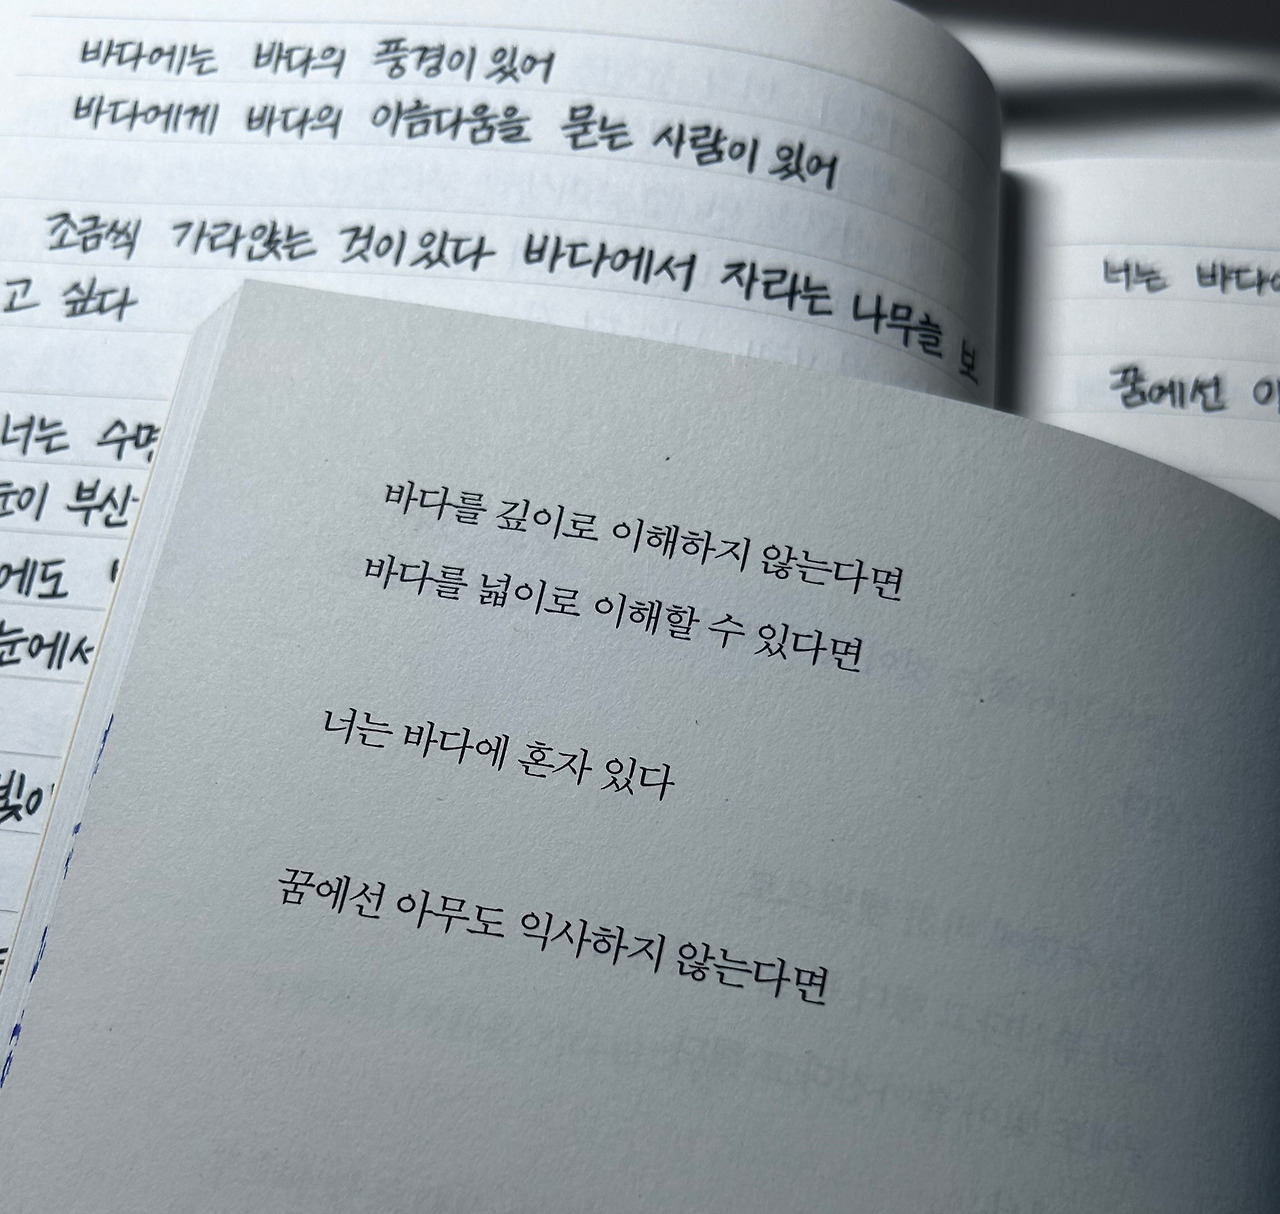 바다에는 바다의 풍경이 있어
바다에게 바다의 아름다움을 묻는 사람이 있어
조금씩 가라앉는 것이 있다 바다에서 자라는 나무를 보
고 싶다
너는 수명
눈이 부산
에도
눈에서
빛이
바다를 깊이로 이해하지 않는다면
바다를 넓이로 이해할 수 있다면
너는 바다에 혼자 있다
꿈에선 아무도 익사하지 않는다면
너는 바다에
꿈에선